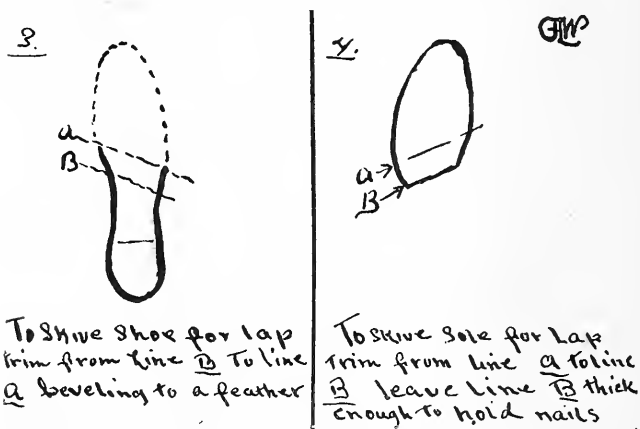 3.
a
B
To Skive Shoe for lap
trim from Line B To line
a beveling to a feather
4.
GHW
a
B
To Skive Sole for Lap
Trim from line a to line
B leave line B thick
enough to hold nails